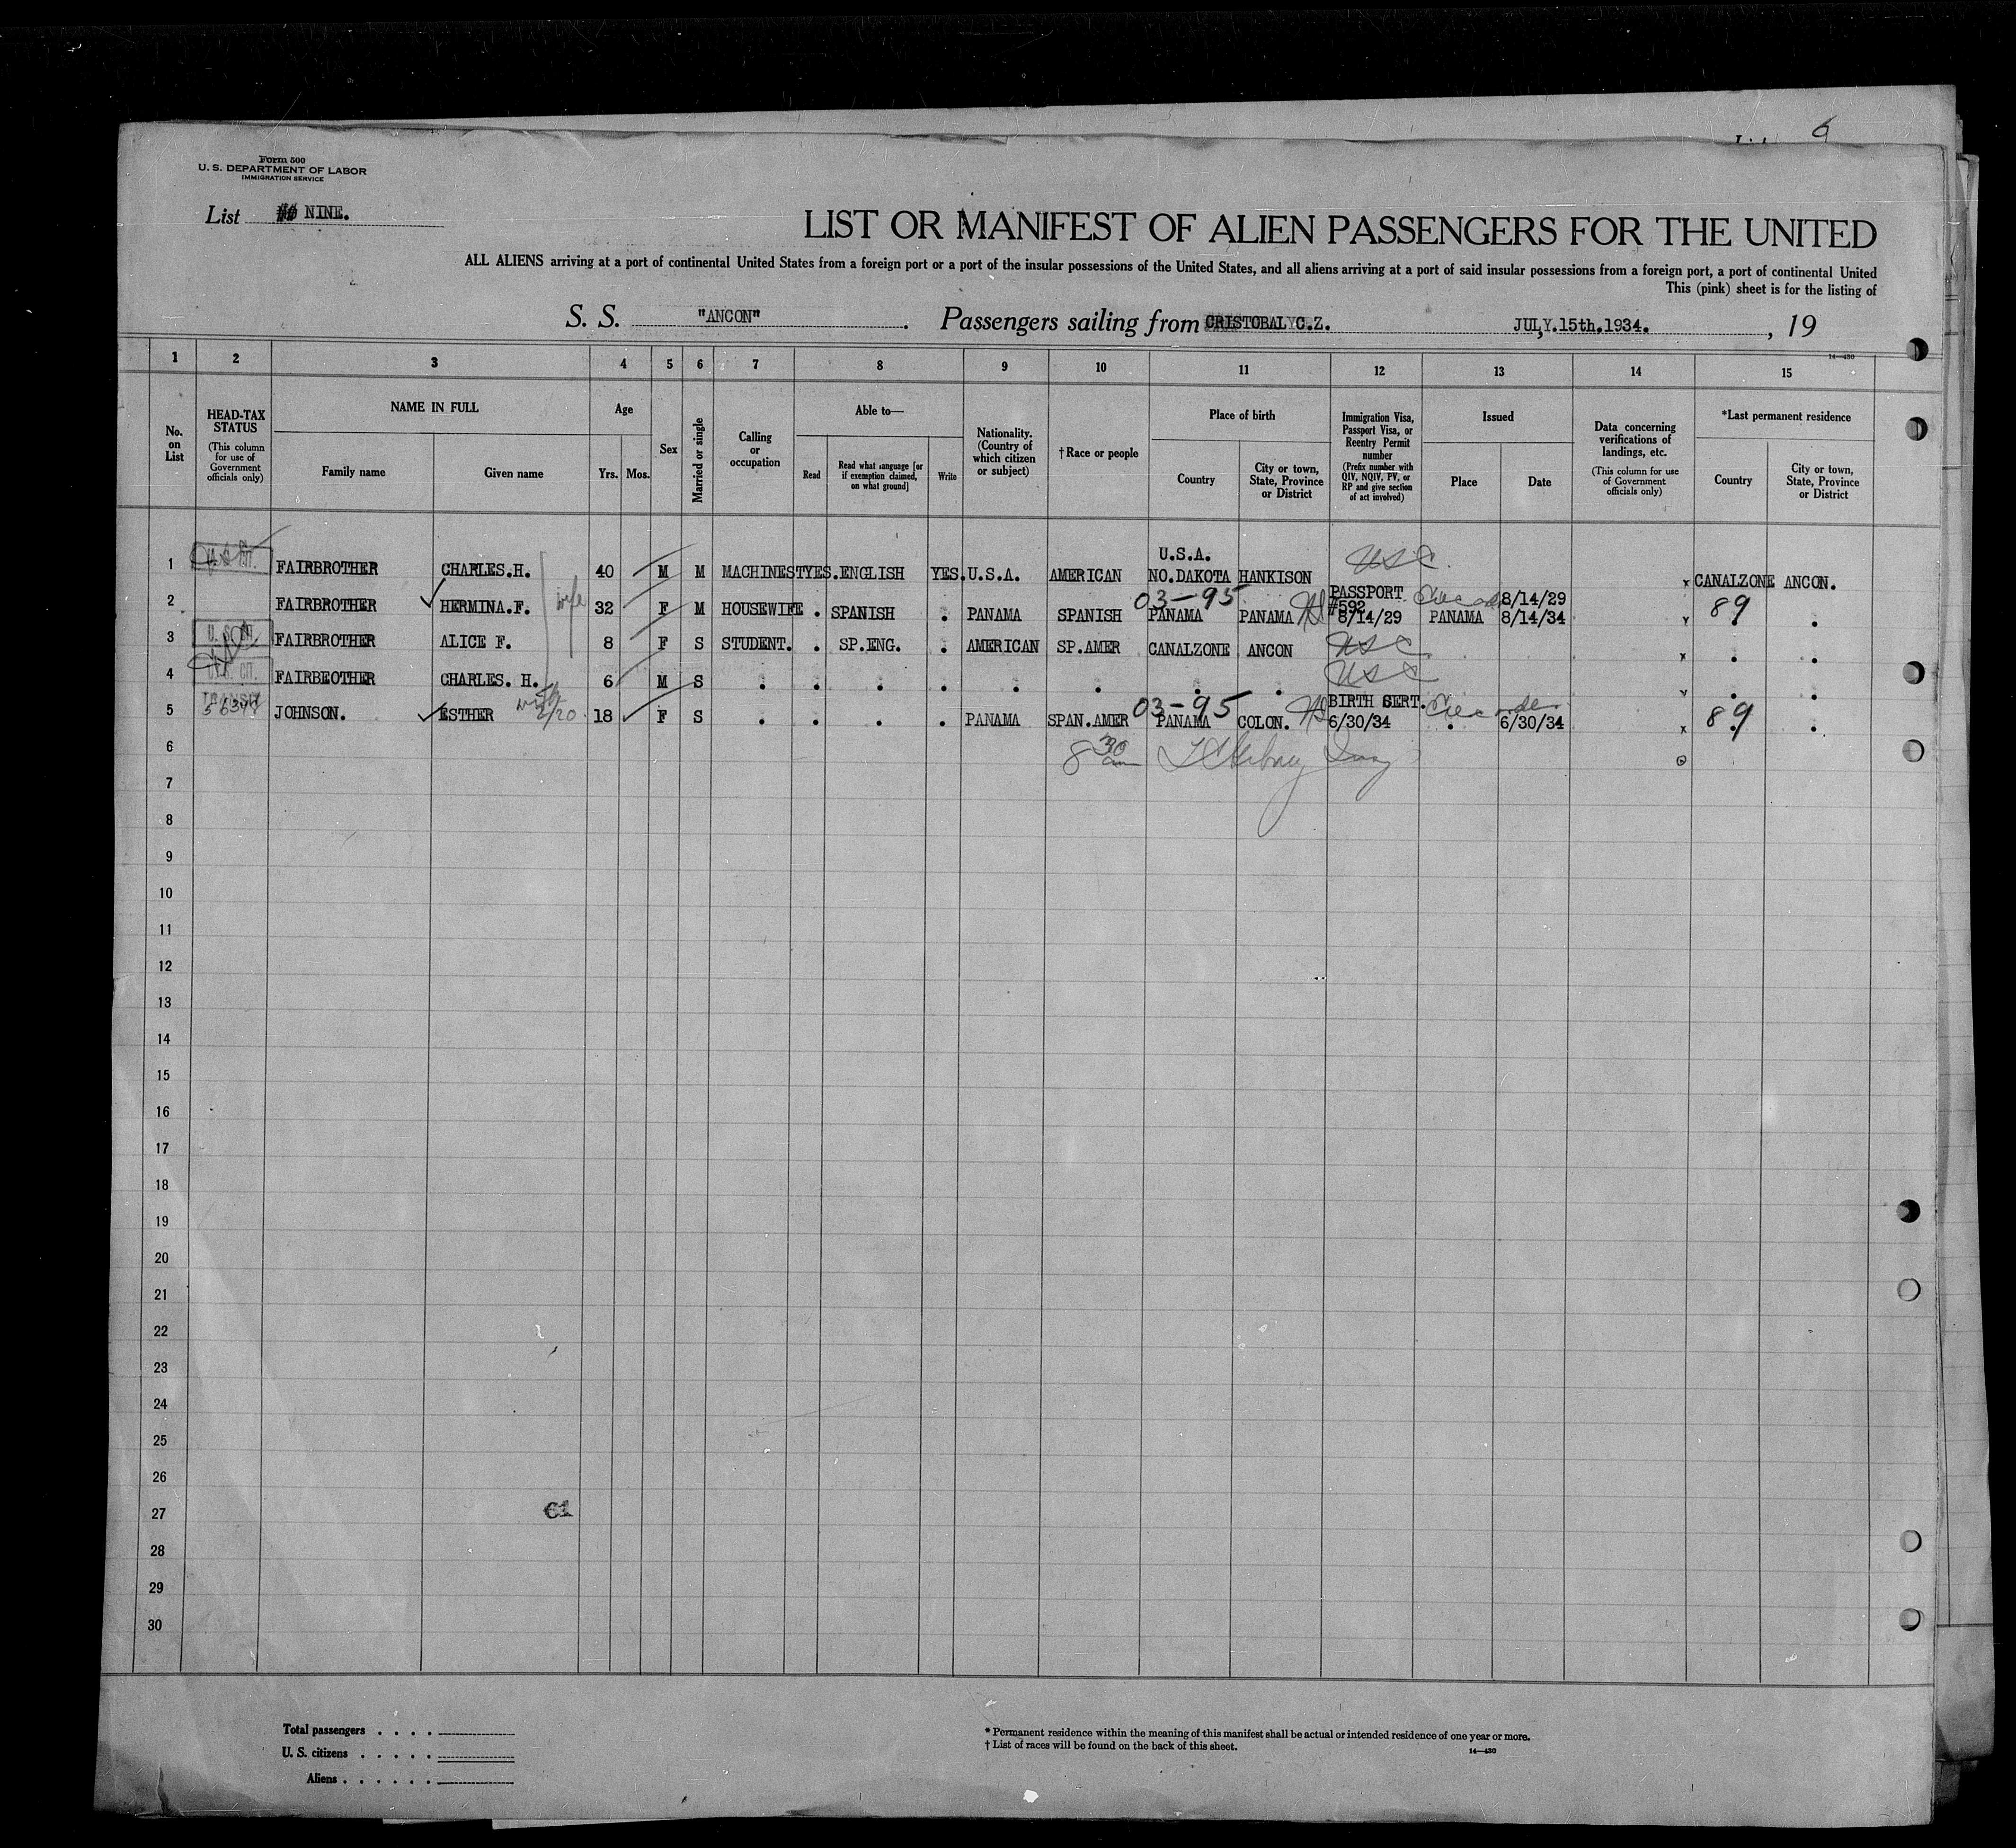 6
Form 500
U. S. DEPARTMENT OF LABOR
IMMIGRATION SERVICE
List NINE.
LIST OR MANIFEST OF ALIEN PASSENGERS FOR THE UNITED
ALL ALIENS arriving at a port of continental United States from a foreign port or a port of the insular possessions of the United States, and all aliens arriving at a port of said insular possessions from a foreign port, a port of continental United
This (pink) sheet is for the listing of
S. S. "ANCON". Passengers sailing from CRISTOBAL C.Z. JULY.15th.1934. , 19
14—430
1 2 3 4 5 6 7 8 9 10 11 12 13 14 15
No. on List
HEAD-TAX STATUS
(This column for use of Government officials only)
NAME IN FULL
Family name Given name
Age
Yrs. Mos.
Sex
Married or single
Calling or occupation
Able to—
Read
Read what language [or if exemption claimed, on what ground]
Write
Nationality. (Country of which citizen or subject)
† Race or people
Place of birth
Country
City or town, State, Province or District
Immigration Visa, Passport Visa, or Reentry Permit number
(Prefix number with QIV, NQIV, PV, or RP and give section of act involved)
Issued
Place Date
Data concerning verifications of landings, etc.
(This column for use of Government officials only)
*Last permanent residence
Country
City or town, State, Province or District
U.S.A. USC
1 U.S. CIT. FAIRBROTHER CHARLES.H. 40 M M MACHINEST YES. ENGLISH YES. U.S.A. AMERICAN NO.DAKOTA HANKISON x CANALZONE ANCON.
wife 03-95 PASSPORT 8/14/29
#592
2 FAIRBROTHER HERMINA.F. 32 F M HOUSEWIFE . SPANISH . PANAMA SPANISH PANAMA PANAMA 8/14/29 PANAMA 8/14/34 x 89 .
3 U. S. CIT. FAIRBROTHER ALICE F. 8 F S STUDENT. . SP.ENG. . AMERICAN SP.AMER CANALZONE ANCON USC x . .
4 U.S. CIT. FAIRBEOTHER CHARLES. H. 6 M S . . . . . . . . USC . .
TRANSIT 03-95 BIRTH SERT.
5 JOHNSON. ESTHER 18 F S . . . . PANAMA SPAN.AMER PANAMA COLON. 6/30/34 . 6/30/34 x 89 .
6 8 30 am
7
8
9
10
11
12
13
14
15
16
17
18
19
20
21
22
23
24
25
26
27 C1
28
29
30
Total passengers . . . .
U. S. citizens . . . . .
Aliens . . . . . .
* Permanent residence within the meaning of this manifest shall be actual or intended residence of one year or more.
† List of races will be found on the back of this sheet.
14—430